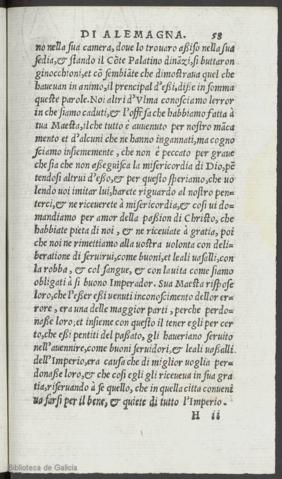 DI ALEMAGNA. 58
no nella sua camera, doue lo trouaro aßiso nella sua
sedia, & stando il Cōte Palatino dināzi, si buttaron
ginocchioni, et cō sembiāte che dimostraua quel che
haueuan in animo, il prencipal d'eßi, diße in somma
queste parole. Noi altri d'Vlma conosciamo l'error
in che siamo caduti, & l'offesa che habbiamo fatta à
tua Maestà, ilche tutto è auuenuto per nostro māca
mento et d'alcuni che ne hanno ingannati, ma cogno
sciamo insiememente, che non è peccato per graue
che sia che non aßeguisca la misericordia di Dio, pē
tendosi altrui d'eßo, & per questo speriamo, che uo
lendo uoi imitar lui, harete riguardo al nostro pen-
terci, & ne riceuerete à misericordia, & così ui do-
mandiamo per amor della paßion di Christo, che
habbiate pietà di noi, & ne riceuiate à gratia, poi
che noi ne rimettiamo alla uostra uolontà con deli-
beratione di seruirui, come buoni, et leali uasalli, con
la robba, & col sangue, & con la uita come siamo
obligati à si buono Imperador. Sua Maestà rispose
loro, che l'eßer eßi uenuti in conoscimento dellor er-
rore, era una delle maggior parti, perche perdo-
naße loro; et insieme con questo il tener egli per cer
to, che eßi pentiti del paßato, gli haueriano seruito
nell'auuenire, come buoni seruidori, & leali uaßalli
dell'Imperio, era causa che di miglior uoglia per-
donaße loro, & che così egli gli riceueua in sua gra
tia, riseruando à se quello, che in quella città conueni
ua farsi per il bene, & quiete di tutto l'Imperio.
H ii
Biblioteca de Galicia